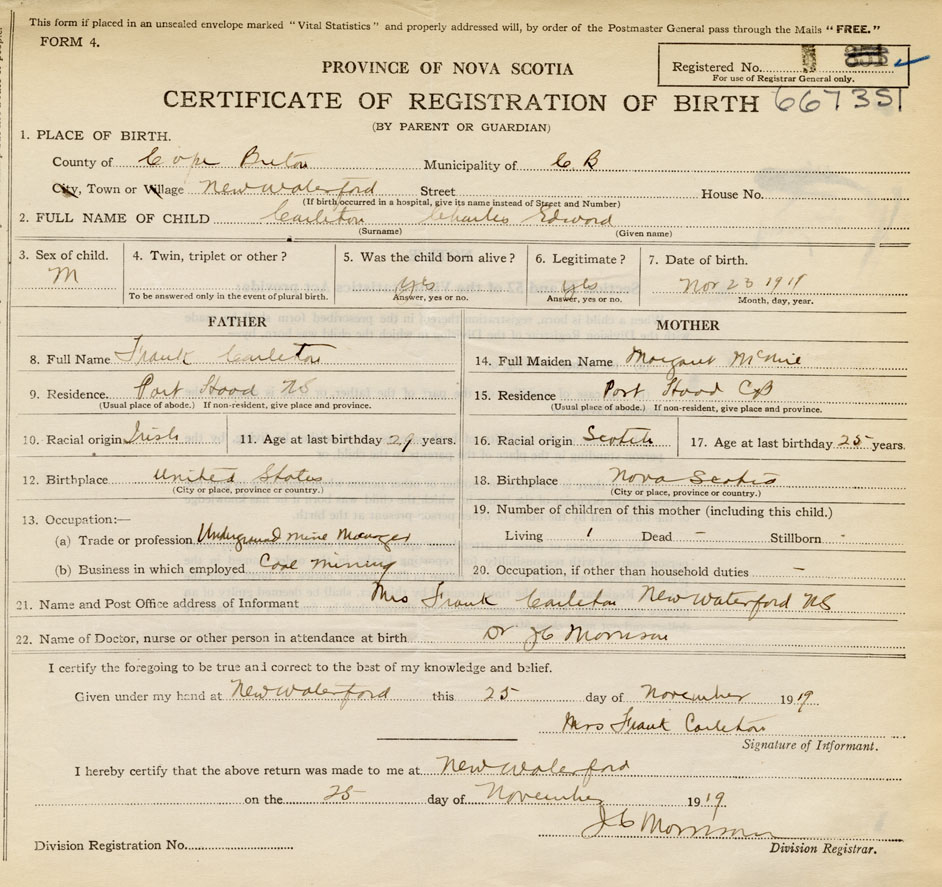 This form if placed in an unsealed envelope marked "Vital Statistics" and properly addressed will, by order of the Postmaster General pass through the Mails "FREE."
FORM 4.
Registered No.
For use of Registrar General only.
PROVINCE OF NOVA SCOTIA
CERTIFICATE OF REGISTRATION OF BIRTH 667351
(BY PARENT OR GUARDIAN)
1. PLACE OF BIRTH.
County of Cape Breton Municipality of C B
City, Town or Village New Waterford Street House No.
(If birth occurred in a hospital, give its name instead of Street and Number)
2. FULL NAME OF CHILD Carleton Charles Edward
(Surname) (Given name)
3. Sex of child. 4. Twin, triplet or other? 5. Was the child born alive? 6. Legitimate? 7. Date of birth.
M yes yes Nov 23 1919
To be answered only in the event of plural birth. Answer, yes or no. Answer, yes or no. Month, day, year.
FATHER MOTHER
8. Full Name Frank Carleton 14. Full Maiden Name Margaret
9. Residence. Port Hood NS 15. Residence Port Hood CB
(Usual place of abode.) If non-resident, give place and province. (Usual place of abode.) If non-resident, give place and province.
10. Racial origin Irish 11. Age at last birthday 29 years. 16. Racial origin Scotch 17. Age at last birthday 25 years.
12. Birthplace United States 18. Birthplace Nova Scotia
(City or place, province or country.) (City or place, province or country.)
13. Occupation:— 19. Number of children of this mother (including this child.)
(a) Trade or profession Underground Mine Manager Living 1 Dead – Stillborn -
(b) Business in which employed Coal mining 20. Occupation, if other than household duties –
21. Name and Post Office address of Informant Mrs Frank Carleton New Waterford NS
22. Name of Doctor, nurse or other person in attendance at birth Dr JC Morrison
I certify the foregoing to be true and correct to the best of my knowledge and belief.
Given under my hand at New Waterford this 25 day of November 1919
Mrs Frank Carleton
Signature of Informant.
I hereby certify that the above return was made to me at New Waterford
on the 25 day of November 1919
JC Morrison
Division Registration No. Division Registrar.